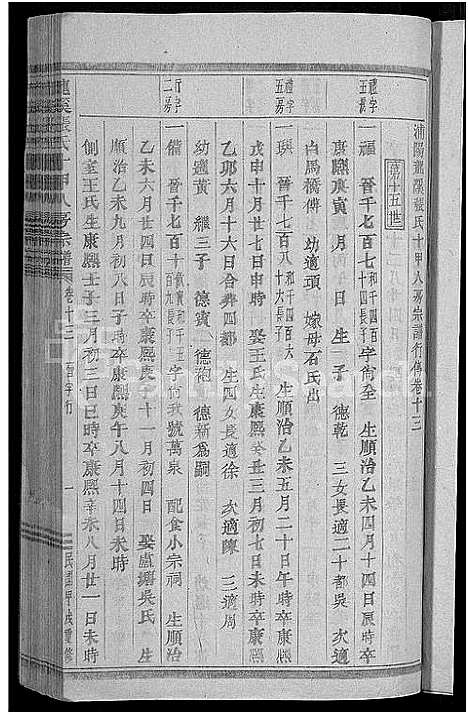 浦陽龍溪張氏十甲八房宗譜行傳卷十三
第十五世
禮字五房
一福 晉千七百 和千四百四長子 字尚全 生順治乙未四月十四日辰時卒
康熙庚寅 月 日 生一子 德乾 三女長適二十都吳 次適
白馬橋傅 幼適項 嫁母石氏出
禮字五房
一瑛 晉千七百八 生順治乙未五月二十日午時卒康熙
戊申十月廿七日申時 娶王氏生康熙 丑三月初七日未時卒康熙
乙卯六月十六日合葬四都 生四女長適徐 次適陳 三適周
幼適黃 繼三子 德賓 德 德新爲嗣
行字二房
一備 晉千七百十 字付 號萬泉 配食小宗祠 生順治
乙未六月廿四日辰時卒康熙庚子十一月初四日 娶盧塘吳氏 生
順治乙未九月初八日子時卒康熙庚午八月十四日未時
側室王氏生康熙壬子三月初三日巳時卒康熙辛未八月廿一日未時
龍溪張氏十甲八房宗譜 卷十三 晉字行 一 民國甲戌重修